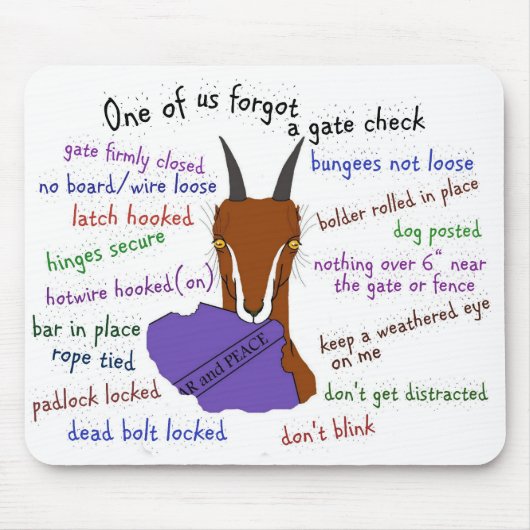 One of us forgot
a gate check
gate firmly closed
no board/wire loose
latch hooked
hinges secure
hotwire hooked(on)
bar in place
rope tied
padlock locked
dead bolt locked
bungees not loose
bolder rolled in place
dog posted
nothing over 6" near
the gate or fence
keep a weathered eye
on me
don't get distracted
don't blink
AR and PEACE